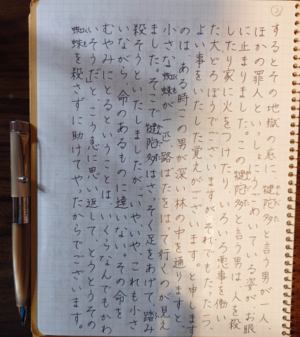 ②
するとその地獄の底に、犍陀多と言う男が一人、
ほかの罪人といっしょに、うごめいている姿がお眼
に止まりました。この犍陀多と言う男は、人を殺
したり家に火をつけたり、いろいろ悪事を働い
た大どろぼうでございますが、それでもたった一つ、
よい事をいたした覚えがございます。と申します
のは、ある時この男が深い林の中を通りますと、
小さな蜘蛛が一匹、路ばたをはって行くのが見え
ました。そこで犍陀多はさっそく足をあげて、踏み
殺そうといたしましたが、いやいや、これも小さ
いながら、命のあるものに違いない。その命を
むやみにとるということは、いくらなんでもかわ
いそうだと、こう急に思い返して、とうとうその
蜘蛛を殺さずに助けてやったからでございます。